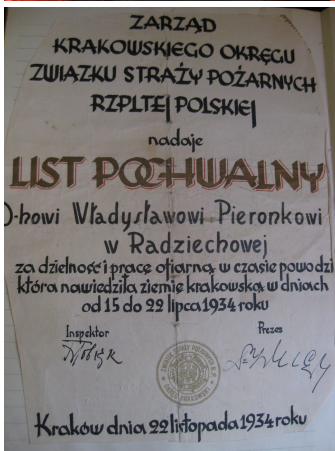 ZARZĄD
KRAKOWSKIEGO OKRĘGU
ZWIĄZKU STRAŻY POŻARNYCH
RZPLTEJ POLSKIEJ
nadaje
LIST POCHWALNY
D-howi Władysławowi Pieronkowi
w Radziechowej
za dzielność i pracę ofiarną w czasie powodzi
która nawiedziła ziemie krakowską w dniach
od 15 do 22 lipca 1934 roku
Inspektor
Prezes
Kraków dnia 22 listopada 1934 roku